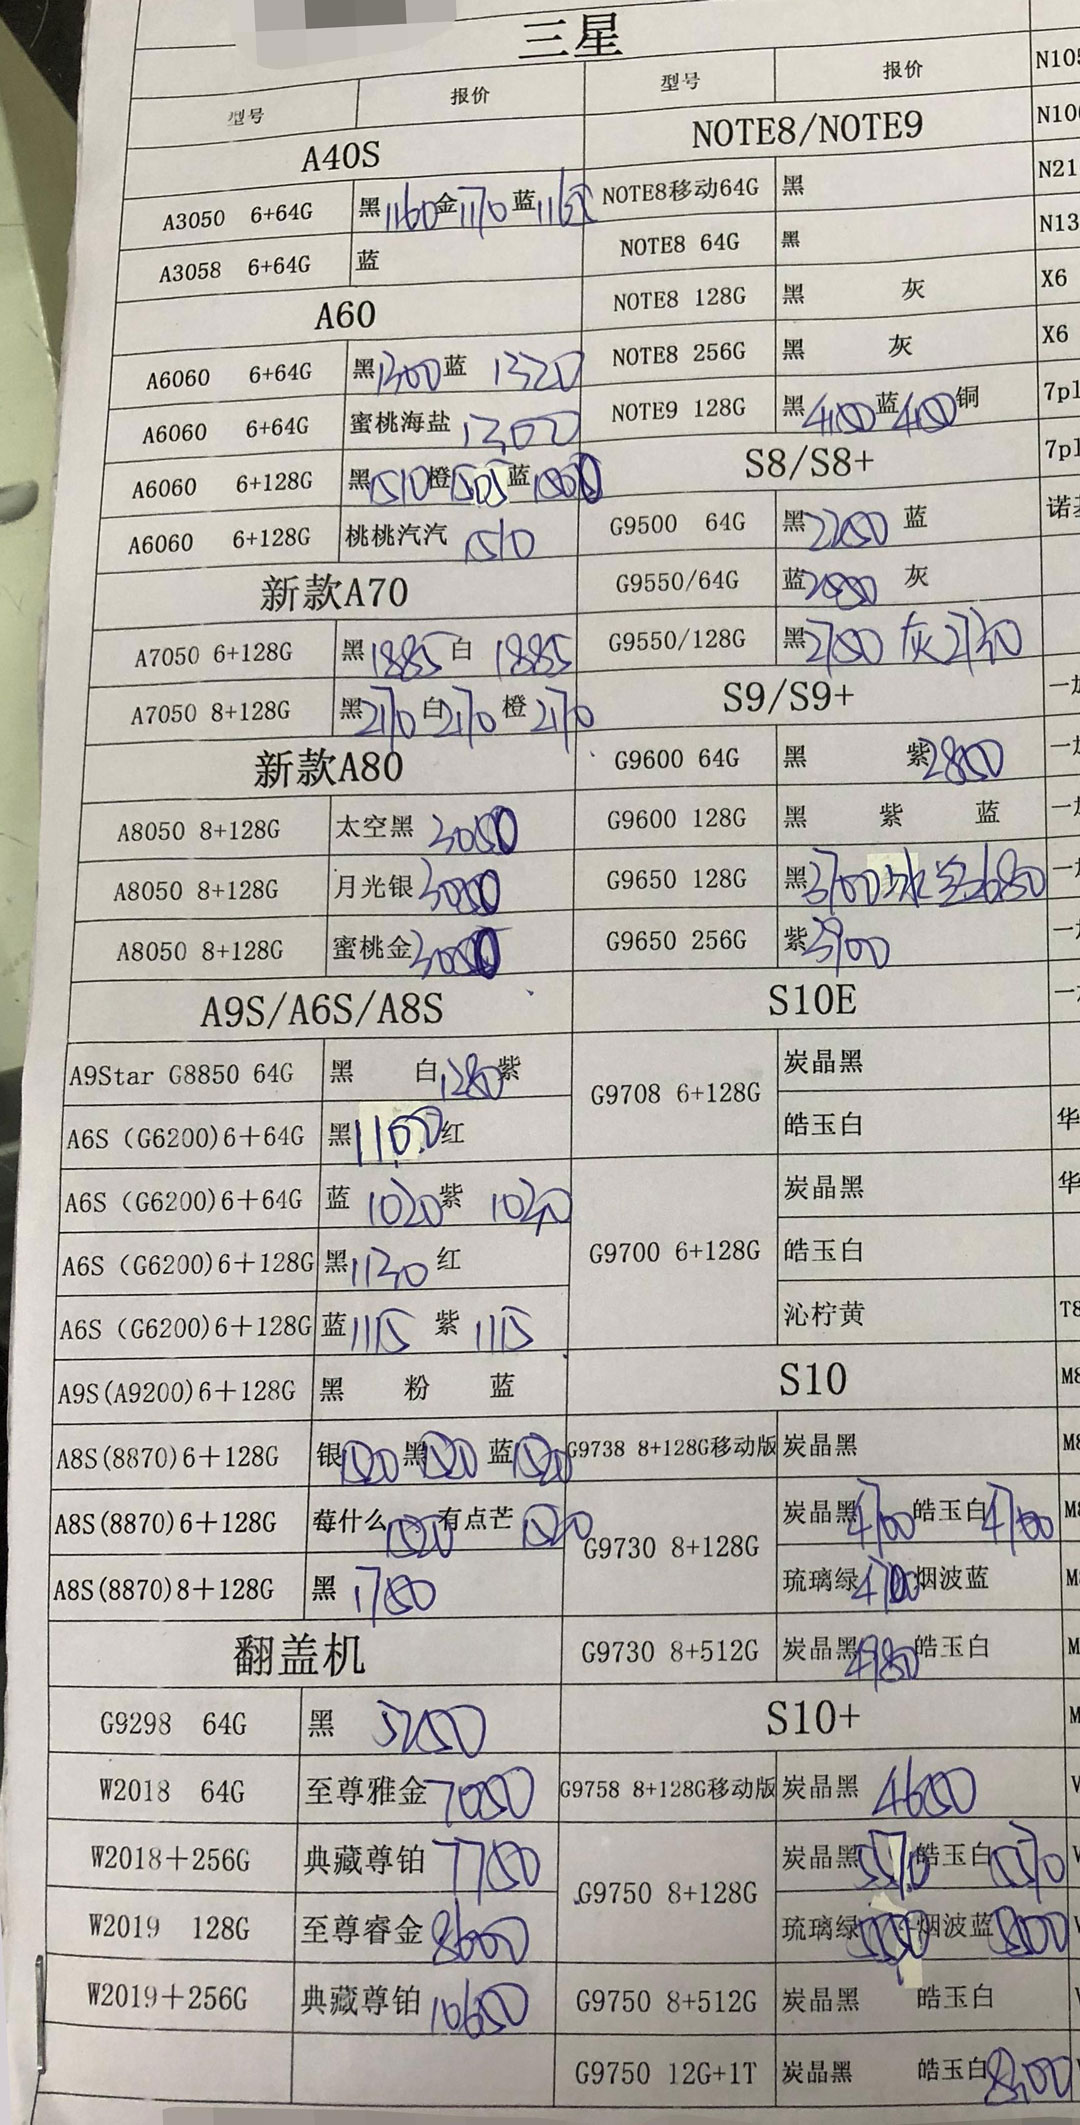 三星
型号 报价 型号 报价
A40S
A3050 6+64G 黑1160金1170 蓝
A3058 6+64G 蓝
A60
A6060 6+64G 黑1300蓝 1320
A6060 6+64G 蜜桃海盐 1300
A6060 6+128G 黑1510橙1505蓝
A6060 6+128G 桃桃汽汽 1510
新款A70
A7050 6+128G 黑1885白 1885
A7050 8+128G 黑2170白2170橙2170
新款A80
A8050 8+128G 太空黑
A8050 8+128G 月光银
A8050 8+128G 蜜桃金
A9S/A6S/A8S
A9Star G8850 64G 黑 白1280紫
A6S (G6200)6+64G 黑 红
A6S (G6200)6+64G 蓝 1020紫
A6S (G6200)6+128G 黑1130 红
A6S (G6200)6+128G 蓝1115 紫1115
A9S(A9200)6+128G 黑 粉 蓝
A8S(8870)6+128G 银1520黑1520蓝1520
A8S(8870)6+128G 莓什么1520有点芒1520
A8S(8870)8+128G 黑 1750
翻盖机
G9298 64G 黑 5250
W2018 64G 至尊雅金7050
W2018+256G 典藏尊铂7750
W2019 128G 至尊睿金8600
W2019+256G 典藏尊铂10650
NOTE8/NOTE9
NOTE8移动64G 黑
NOTE8 64G 黑
NOTE8 128G 黑 灰
NOTE8 256G 黑 灰
NOTE9 128G 黑 蓝 铜
S8/S8+
G9500 64G 黑2250 蓝
G9550/64G 蓝 灰
G9550/128G 黑2750 灰2730
S9/S9+
G9600 64G 黑 紫2850
G9600 128G 黑 紫 蓝
G9650 128G 黑3700冰蓝3680
G9650 256G 紫3900
S10E
G9708 6+128G 炭晶黑
皓玉白
G9700 6+128G 炭晶黑
皓玉白
沁柠黄
S10
G9738 8+128G移动版 炭晶黑
G9730 8+128G 炭晶黑4700皓玉白4700
琉璃绿4700烟波蓝
G9730 8+512G 炭晶黑4980皓玉白
S10+
G9758 8+128G移动版 炭晶黑 4650
G9750 8+128G 炭晶黑5570皓玉白5570
琉璃绿 烟波蓝
G9750 8+512G 炭晶黑 皓玉白
G9750 12G+1T 炭晶黑 皓玉白
N21
N13
X6
X6